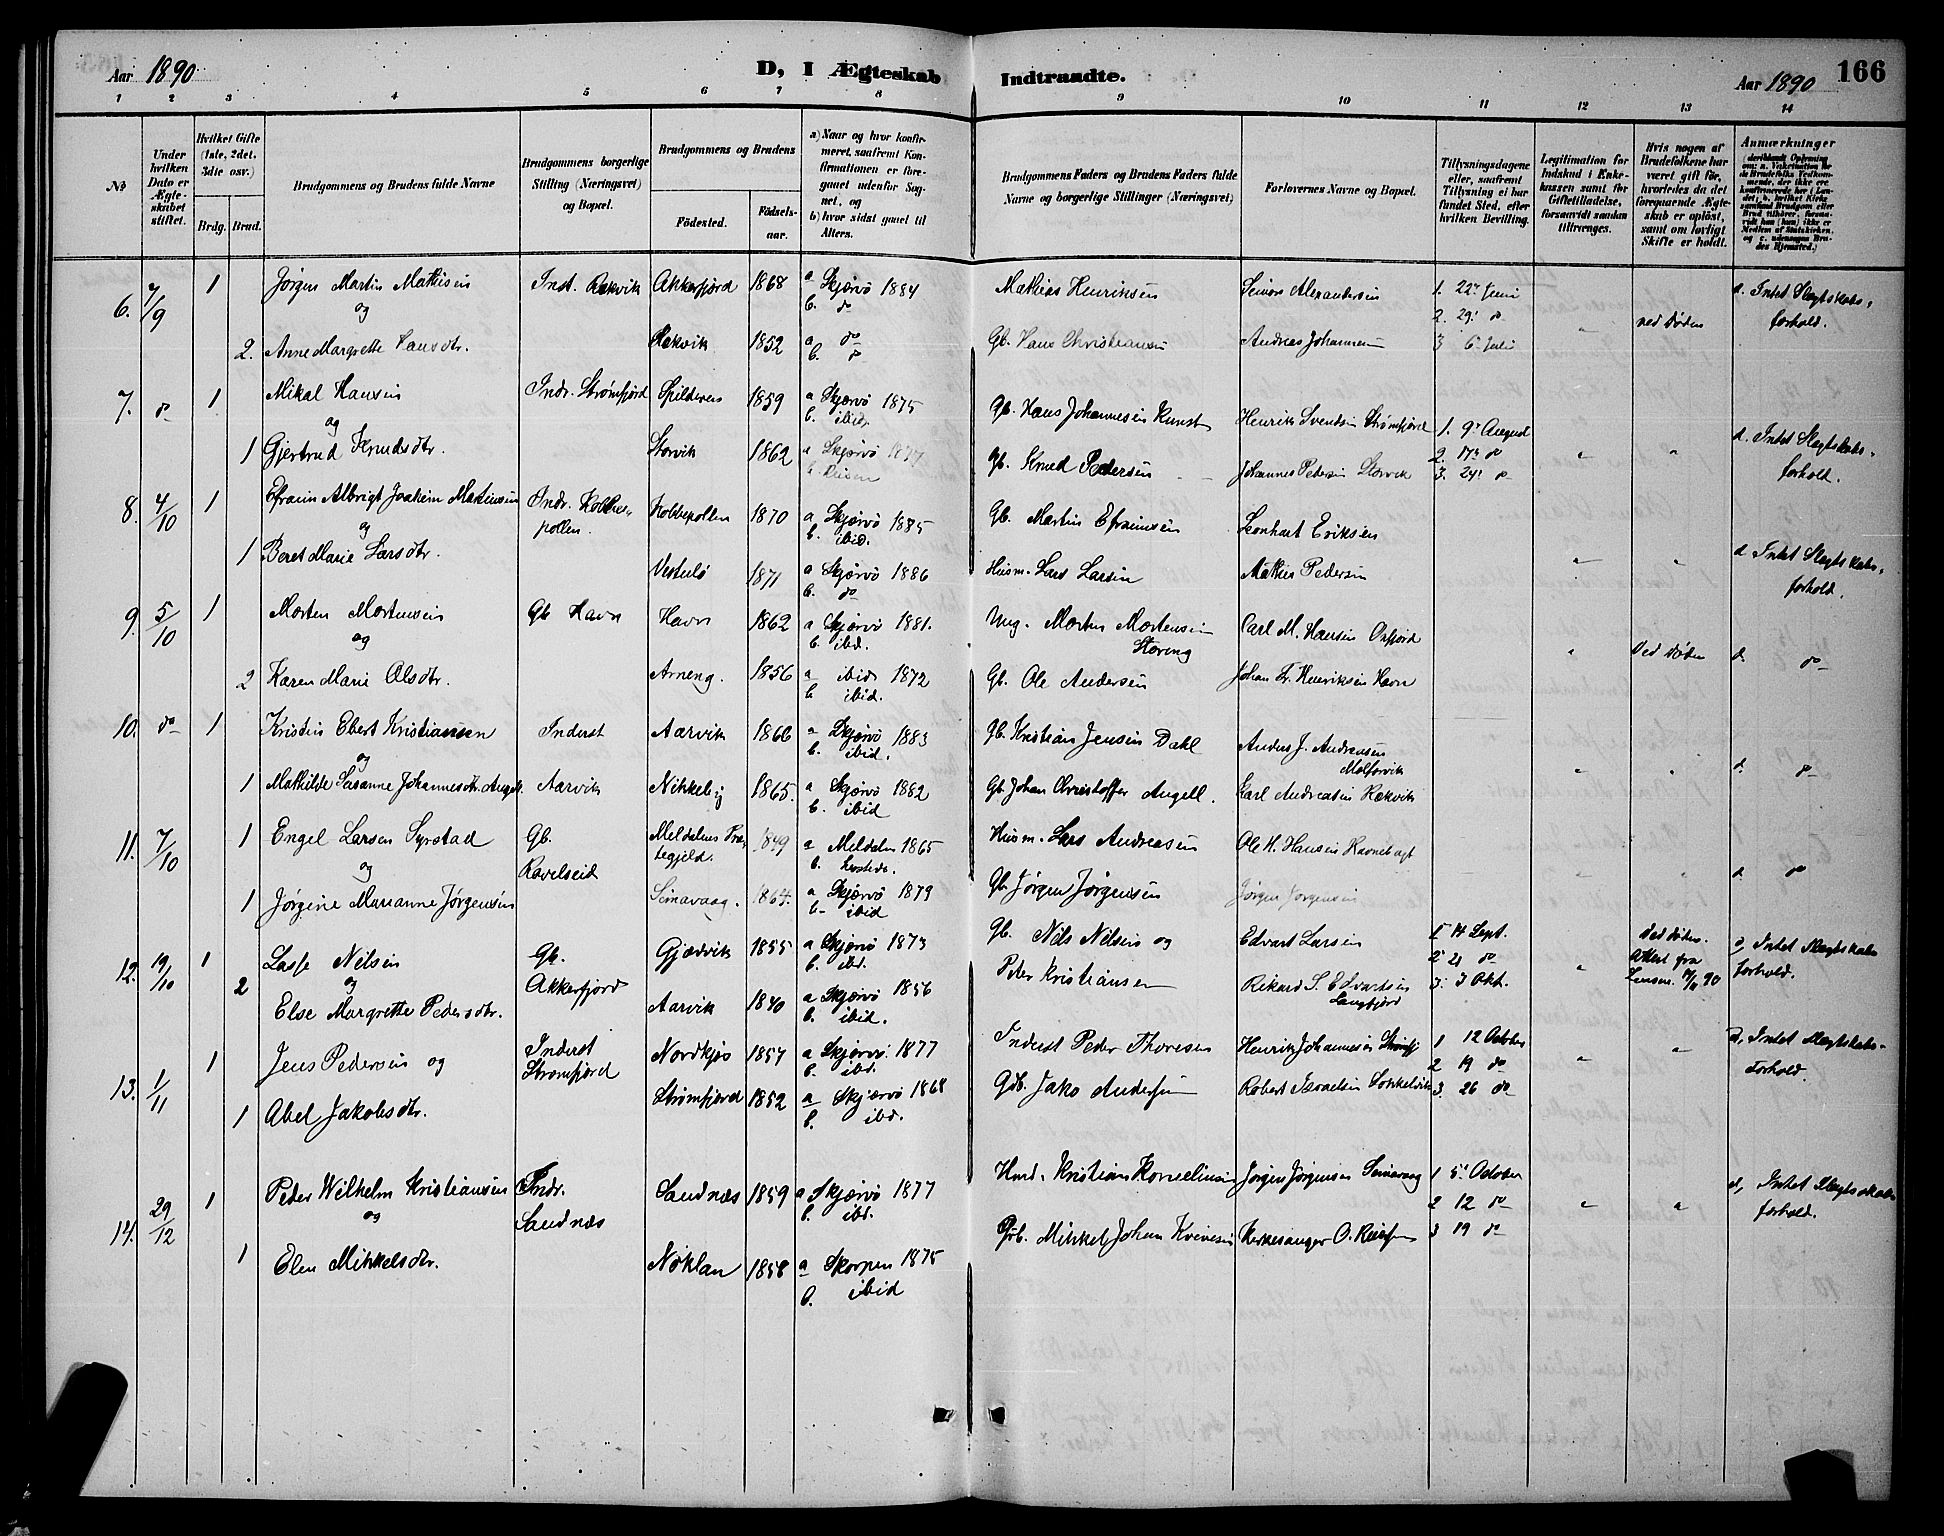 Aar 1890
D, I Ægteskab Indtraadte.
Aar 1890
166
1 2 3 4 5 6 7 8 9 10 11 12 13 14
No
Under hvilken Dato er Ægteskabet stiftet.
Hvilket Gifte (1ste, 2det, 3die osv.)
Brdg. Brud.
Brudgommens og Brudens fulde Navne
Brudgommens borgerlige Stilling (Næringsvei) og Bopæl.
Brudgommens og Brudens
Fødested.
Fødselsaar.
a) Naar og hvor konfirmeret, saafremt Konfirmationen er foregaaet udenfor Sognet, og
b) hvor sidst gaaet til Alters.
Brudgommens Faders og Brudens Faders fulde Navne og borgerlige Stillinger (Næringsvei)
Forlovernes Navne og Bopæl.
Tillysningsdagene eller, saafremt Tillysning ei har fundet Sted, efter hvilken Bevilling.
Legitimation for Indskud i Enkekassen samt for Giftetilladelse, forsaavidt saadan tiltrænges.
Hvis nogen af Brudefolkene har været gift før, hvorledes da det foregaaende Ægteskab er opløst, samt om lovligt Skifte er holdt.
Anmærkninger
6. 7/9 1 Jørgen Martin Mathisen Inst. Aakvik Akkerfjord 1868 a Skjærvö 1884 b. do Mathias Henriksen Simon Alexandersen 1. 22de Juni d. Intet Slegtskabs-
og 2. 29. do ved Døden forhold.
2. Anne Margrethe Hansdtr. Rekvik 1852 a do b. do Gb. Hans Christiansen Andreas Johannesen 3 6te Juli
7. do 1 Mikal Hansen Indr. Strømfjord Spilderen 1859 a Skjærvö 1875 b. ibid. Gb. Hans Johannesen Kunst Henrik Svendsen Strømfjord 1. 9de August
og
1 Gjertrud Knudsdtr. Storvik 1862 a Skjærvö 1877 Gb. Knud Pedersen Johannes Pedersen Storvik 2. 17de do 3. 24. do d. Intet Slegtskabs-forhold.
8. 4/10 1 Efraim Albrigt Joakim Martinsen Indr. Kobbepollen. Kobbepollen 1870 a Skjærvö 1885 b. ibid. Gb. Martin Efraimsen Leonhart Eriksen
og
1 Beret Marie Larsdtr. 1871 a Skjærvö 1886 b. do Husm. Lars Larsen Mathis Pedersen d Intet Slegtskabs-forhold.
9. 5/10 1 Morten Mortensen Gb Havn Havn 1862 a Skjærvö 1881. b. ibd. Ung. Morten Mortensen Carl M. Hansen Oxfjord
og
2 Karen Marie Olsdtr. Arneng. 1856 a ibid 1872 b ibid. Gb. Ole Andersen Johan Fr. Henriksen Havn Ved Døden d. do
10. do 1 Kristen Ebert Kristiansen Inderst Aarvik 1866 a Skjærvö 1883 b. ibid. Gb. Kristian Jensen Dahl Anders J. Andreasen
og
1 Mathilde Susanne Johannesdtr. Angell. Aarvik Nikkeby 1865. a Skjærvö 1882 b. ibid Gb. Johan Christoffer Angell. Carl Andreasen Rekvik d. do
11. 7/10 1 Engel Larsen Syrstad Gb. Ravelseid Meldalens Præstegjeld. 1849 a Meldalen 1865 Husm. Lars Andreasen Ole H. Hansen Havnebugt
og
1 Jørgine Marianne Jørgensen Simavaag. 1864. a Skjærvö 1879 b. ibid Gb. Jørgen Jørgensen Jørgen Jørgensen d. do
12. 19/10 1 Lasse Nilsen Gb. Akkerfjord Gjødvik 1855 a Skjærvö 1873 b. ibd. Gb. Nils Nilsen og Edvart Larsen 1 14 Sept. Ved Døden. d, Intet Slegtskabs
og 2 21 do Attest fra forhold.
2 Else Margrethe Pedersdtr. Aarvik 1840 a Skjærvö 1856 b. ibid. Peder Kristiansen Rikard S. Edvartsen Langfjord 3. 3 Okt. 90
13. 1/11 1 Jens Pedersen og Inderst Strømfjord Nordkjos 1857 a Skjærvö. 1877 b. ibd. Inderst Peder Thoresen Henrik Johannesen Strømfj 1 12 October d, Intet Slegtskabs-
2 19 do forhold.
1 Abel Jakobsdtr. Strømfjord 1852 a Skjærvö 1868 b. ibd. Gdb. Jako Andersen Robert Israelsen Sokkelvik 3. 26 do
14. 29/12 1 Peder Wilhelm Kristiansen Indr. Sandnæs Sandnæs 1859 a Skjærvö 1877 b. ibd. Husm. Kristian Kornelius​sen Jørgen Jørgensen Simavaag 1 5. October d, Intet Slegtskabs
og 2 12 do forhold.
1 Elen Mikkelsdtr. Nöklan 1858 a Skorpen 1875 b. ibid Gb. Mikkel Johan Kirkesanger O. 3 19 do